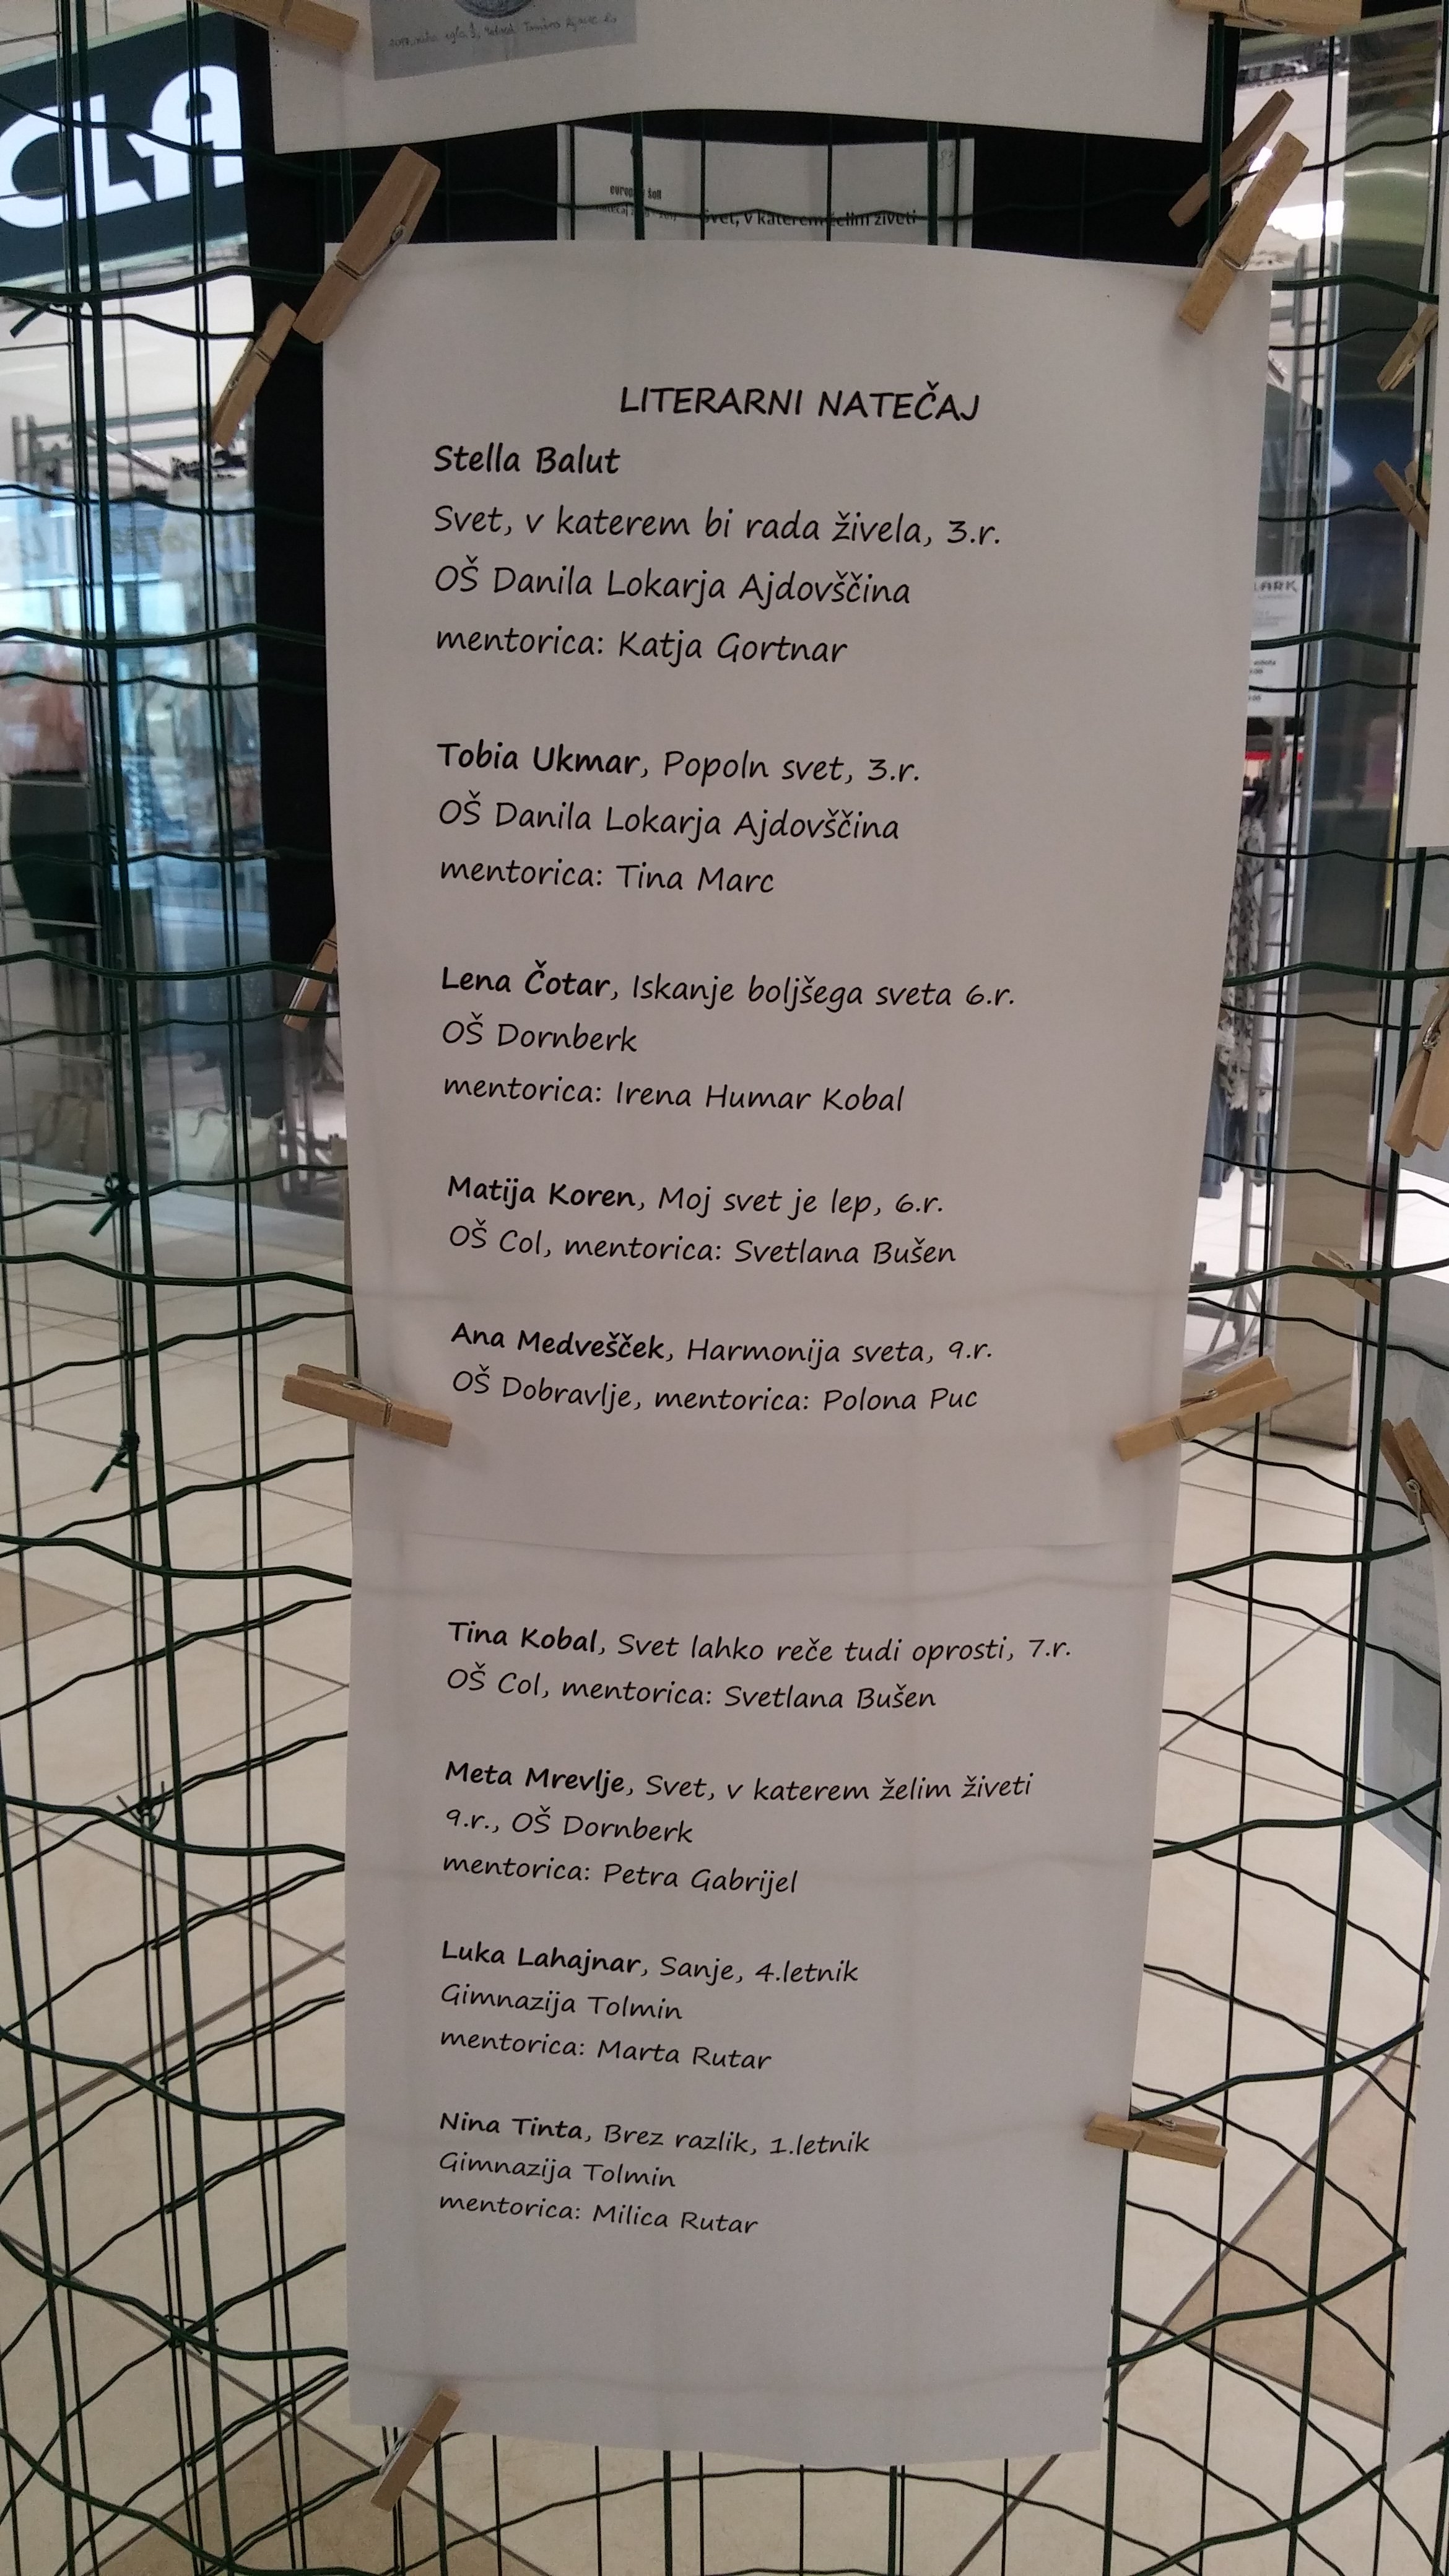 CLA
Svet, v katerem želim živeti
LITERARNI NATEČAJ
Stella Balut
Svet, v katerem bi rada živela, 3.r.
OŠ Danila Lokarja Ajdovščina
mentorica: Katja Gortnar
Tobia Ukmar, Popoln svet, 3.r.
OŠ Danila Lokarja Ajdovščina
mentorica: Tina Marc
Lena Čotar, Iskanje boljšega sveta 6.r.
OŠ Dornberk
mentorica: Irena Humar Kobal
Matija Koren, Moj svet je lep, 6.r.
OŠ Col, mentorica: Svetlana Bušen
Ana Medvešček, Harmonija sveta, 9.r.
OŠ Dobravlje, mentorica: Polona Puc
Tina Kobal, Svet lahko reče tudi oprosti, 7.r.
OŠ Col, mentorica: Svetlana Bušen
Meta Mrevlje, Svet, v katerem želim živeti
9.r., OŠ Dornberk
mentorica: Petra Gabrijel
Luka Lahajnar, Sanje, 4.letnik
Gimnazija Tolmin
mentorica: Marta Rutar
Nina Tinta, Brez razlik, 1.letnik
Gimnazija Tolmin
mentorica: Milica Rutar